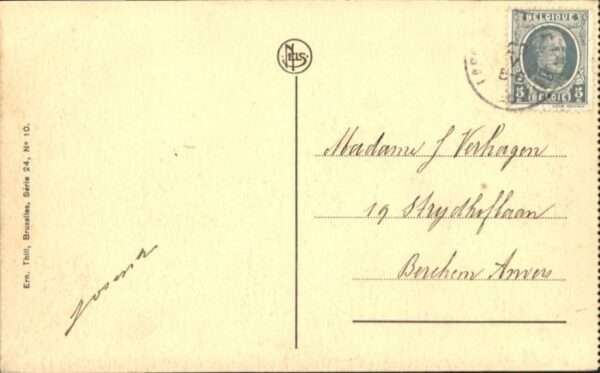 BELGIQUE
5 5
BELGIË
NELS
Madame J Verhagen
19 Strydhoflaan
Berchem Anvers
Ern. Thill, Bruxelles, Série 24, No 10.